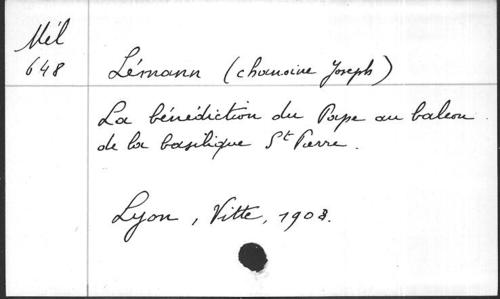 Mél
648
Lémann (chanoine Joseph)
La bénédiction du Pape au balcon
de la basilique St Pierre.
Lyon, Vitte, 1908.